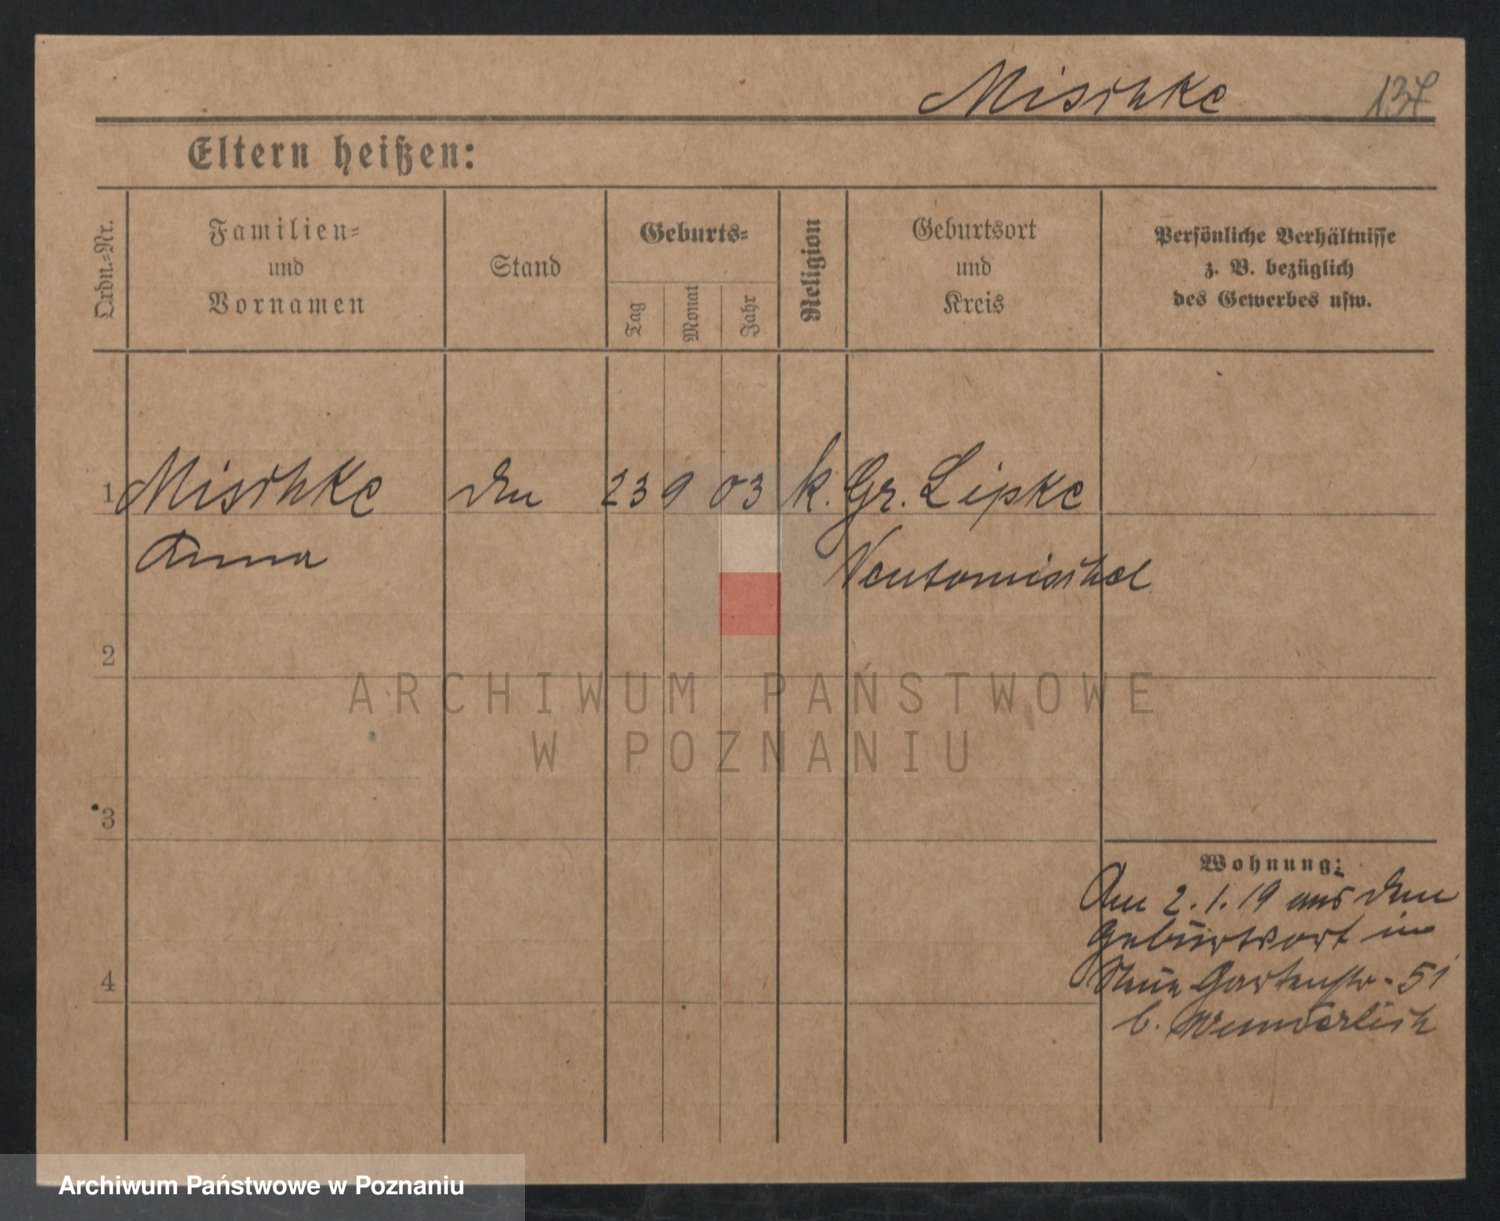 Mischke 137
Eltern heißen:
Ordn.-Nr.
Familien-
und
Vornamen
Stand
Geburts-
Tag
Monat
Jahr
Religion
Geburtsort
und
Kreis
Persönliche Verhältnisse
z. B. bezüglich
des Gewerbes usw.
1 Mischke 23 9 03 k. Gr. Lipke
Anna Neutomischel
2
ARCHIWUM PAŃSTWOWE
W POZNANIU
3
Wohnung:
Am 2.1.19 aus dem
Geburtsort in
Gartenstr. 51
b. Wunderlich
4
Archiwum Państwowe w Poznaniu